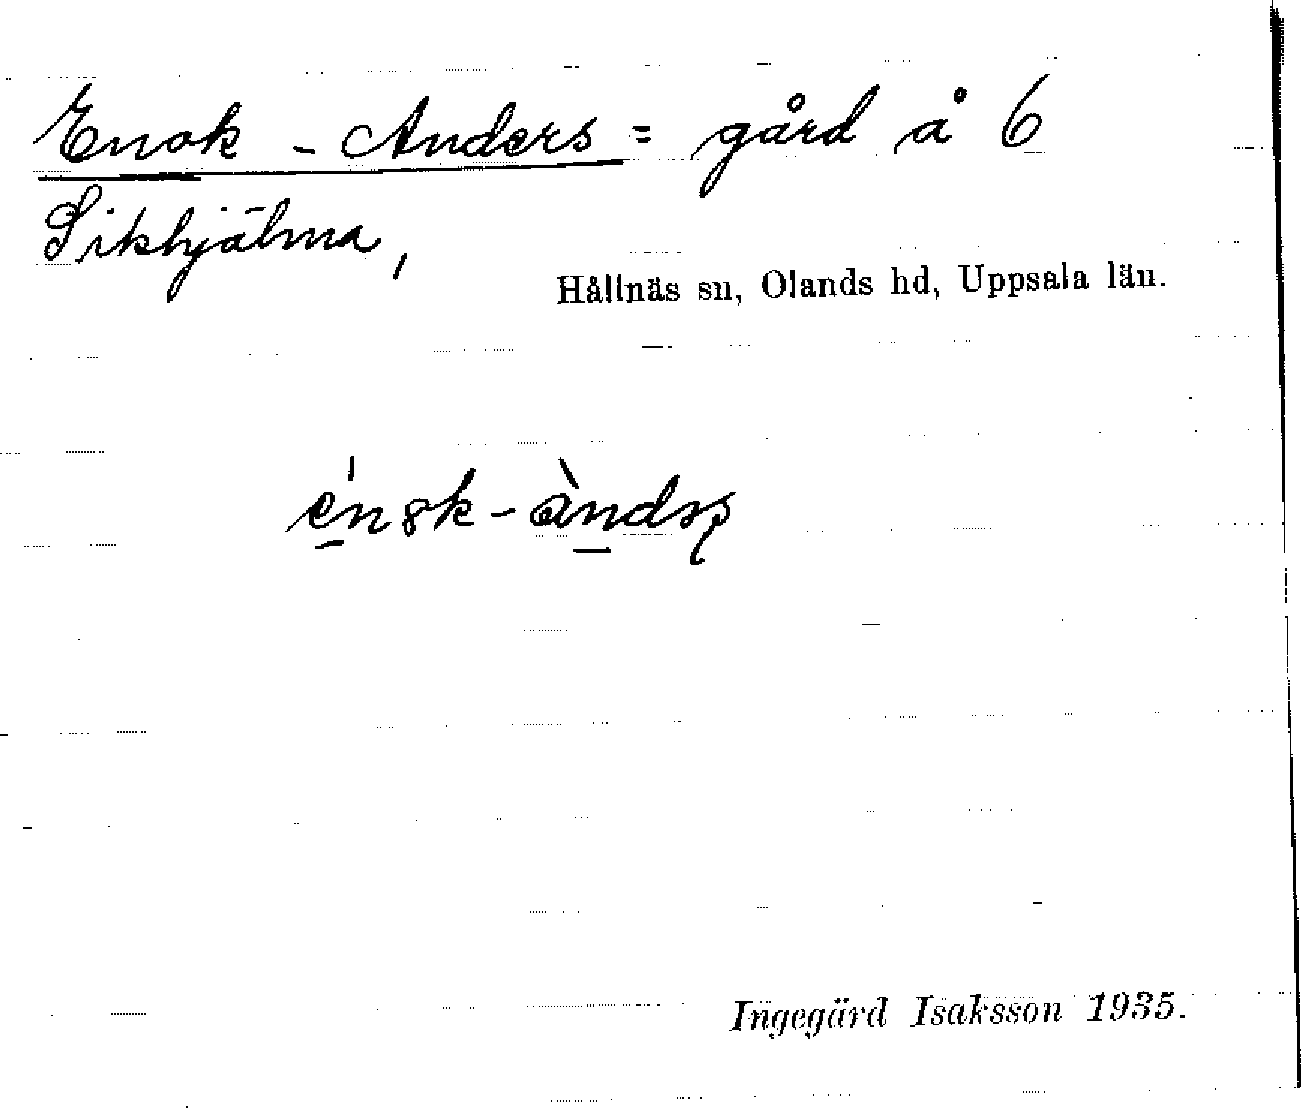 Enok - Anders = gård å 6
Sikhjälma,
Hållnäs sn, Olands hd, Uppsala län.
Ingegärd Isaksson 1935.